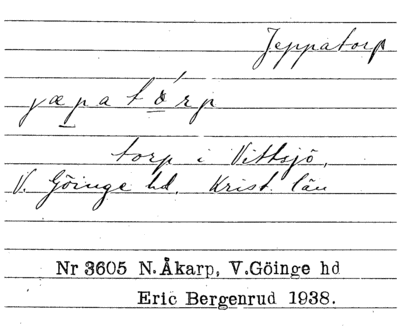 Jeppatorp
jæpatórp
torp i Vittsjö,
V. Göinge hd. Krist. län
Nr 3605 N.Åkarp, V.Göinge hd
Eric Bergenrud 1938.